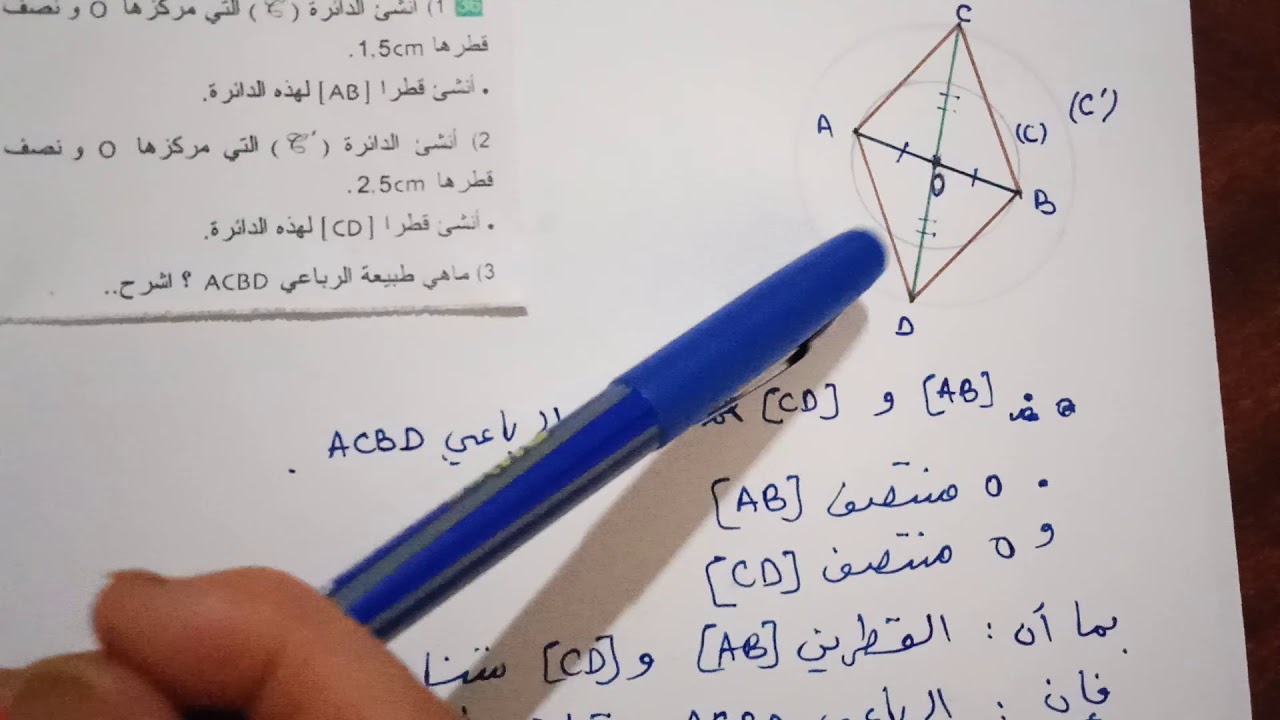 36 1) أنشئ الدائرة (C) التي مركزها O و نصف
قطرها 1.5cm.
• أنشئ قطرا [AB] لهذه الدائرة.
2) أنشئ الدائرة (C′) التي مركزها O و نصف
قطرها 2.5cm.
• أنشئ قطرا [CD] لهذه الدائرة.
3) ماهي طبيعة الرباعي ACBD ؟ اشرح..
C
A
(C)
(C')
O
B
D
[AB] و [CD] الرباعي ACBD .
• O منتصف [AB]
و O منتصف [CD]
بما أن : القطرين [AB] و [CD]
فإن : الرباعي